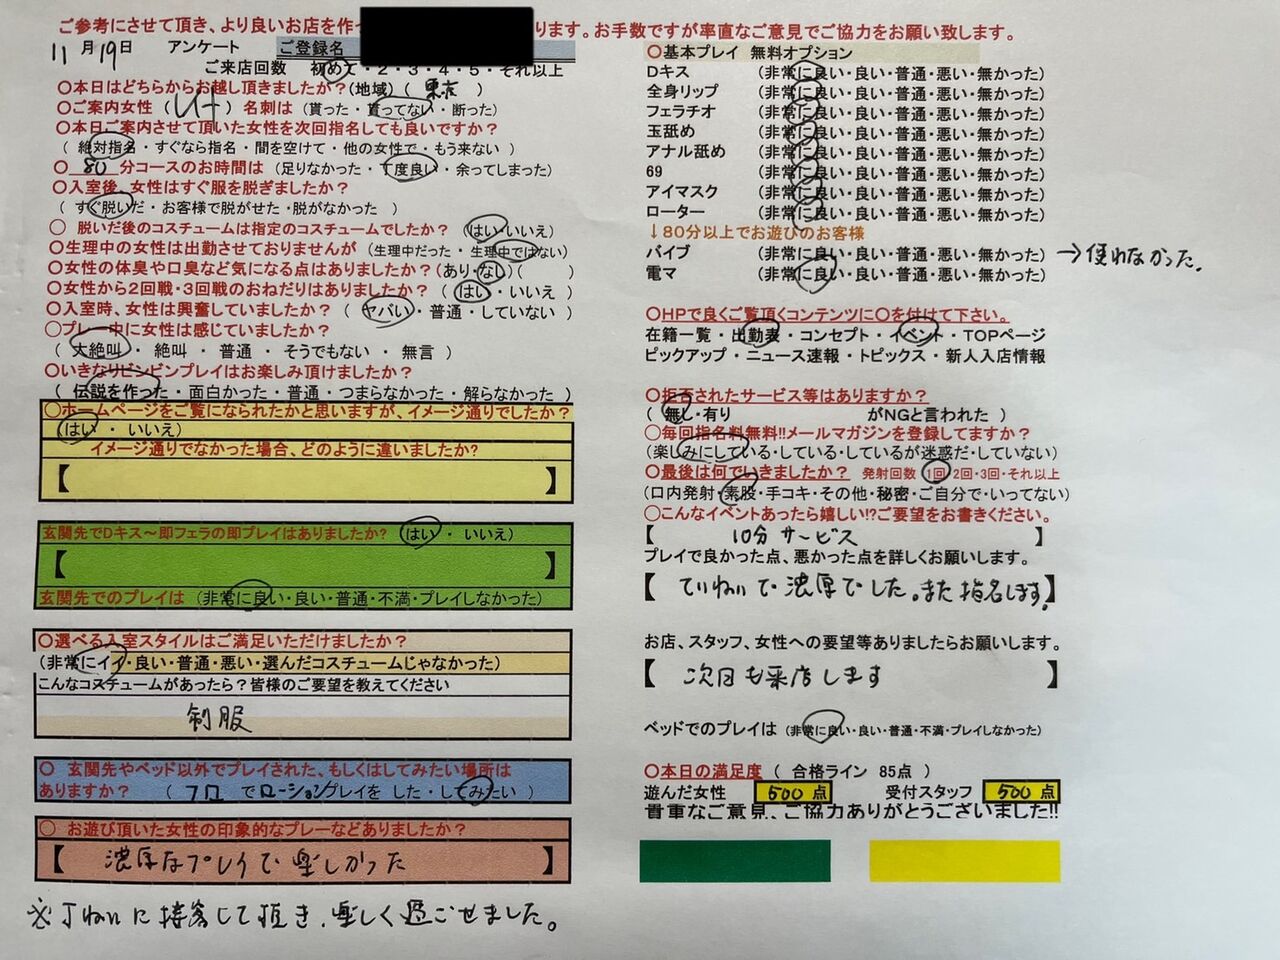 ご参考にさせて頂き、より良いお店を作 ります。お手数ですが率直なご意見でご協力をお願い致します。
11月19日 アンケート ご登録名
ご来店回数 初めて・2・3・4・5・それ以上
〇本日はどちらからお越し頂きましたか?(地域)( 東京 )
〇ご案内女性( )名刺は(貰った・貰ってない・断った)
〇本日ご案内させて頂いた女性を次回指名しても良いですか?
( 絶対指名・すぐなら指名・間を空けて・他の女性で・もう来ない )
〇 80 分コースのお時間は(足りなかった・丁度良い・余ってしまった)
〇入室後、女性はすぐ服を脱ぎましたか?
( すぐ脱いだ・お客様で脱がせた・脱がなかった )
〇 脱いだ後のコスチュームは指定のコスチュームでしたか?(はい・いいえ)
〇生理中の女性は出勤させておりませんが(生理中だった・生理中ではない)
〇女性の体臭や口臭など気になる点はありましたか?(あり・なし)( )
〇女性から2回戦・3回戦のおねだりはありましたか? ( はい・いいえ )
〇入室時、女性は興奮していましたか? ( ヤバい・普通・していない )
〇プレー中に女性は感じていましたか?
( 大絶叫・絶叫・普通・そうでもない・無言 )
〇いきなりビンビンプレイはお楽しみ頂けましたか?
( 伝説を作った・面白かった・普通・つまらなかった・解らなかった )
〇ホームページをご覧になられたかと思いますが、イメージ通りでしたか?
(はい・いいえ)
イメージ通りでなかった場合、どのように違いましたか?
【 】
玄関先でDキス~即フェラの即プレイはありましたか? (はい・いいえ)
【 】
玄関先でのプレイは (非常に良い・良い・普通・不満・プレイしなかった)
〇選べる入室スタイルはご満足いただけましたか?
(非常にイイ・良い・普通・悪い・選んだコスチュームじゃなかった)
こんなコスチュームがあったら?皆様のご要望を教えてください
制服
〇 玄関先やベッド以外でプレイされた、もしくはしてみたい場所は
ありますか? ( フロ でローションプレイを した・してみたい )
〇 お遊び頂いた女性の印象的なプレーなどありましたか?
【 濃厚なプレイで楽しかった 】
※丁ねいに接客して頂き、楽しく過ごせました。
〇基本プレイ 無料オプション
Dキス (非常に良い・良い・普通・悪い・無かった)
全身リップ (非常に良い・良い・普通・悪い・無かった)
フェラチオ (非常に良い・良い・普通・悪い・無かった)
玉舐め (非常に良い・良い・普通・悪い・無かった)
アナル舐め (非常に良い・良い・普通・悪い・無かった)
69 (非常に良い・良い・普通・悪い・無かった)
アイマスク (非常に良い・良い・普通・悪い・無かった)
ローター (非常に良い・良い・普通・悪い・無かった)
↓80分以上でお遊びのお客様
バイブ (非常に良い・良い・普通・悪い・無かった) →使わなかった。
電マ (非常に良い・良い・普通・悪い・無かった)
〇HPで良くご覧頂くコンテンツに〇を付けて下さい。
在籍一覧・出勤表・コンセプト・イベント・TOPページ
ピックアップ・ニュース速報・トピックス・新人入店情報
〇拒否されたサービス等はありますか?
( 無し・有り がNGと言われた )
〇毎回指名料無料!!メールマガジンを登録してますか?
(楽しみにしている・している・しているが迷惑だ・していない)
〇最後は何でいきましたか? 発射回数 1回・2回・3回・それ以上
(口内発射・素股・手コキ・その他・秘密・ご自分で・いってない)
〇こんなイベントあったら嬉しい!?ご要望をお書きください。
【 10分サービス 】
プレイで良かった点、悪かった点を詳しくお願いします。
【 ていねいで濃厚でした。また指名します! 】
お店、スタッフ、女性への要望等ありましたらお願いします。
【 次回も来店します 】
ベッドでのプレイは (非常に良い・良い・普通・不満・プレイしなかった)
〇本日の満足度 ( 合格ライン 85点 )
遊んだ女性 500 点 受付スタッフ 500 点
貴重なご意見、ご協力ありがとうございました!!